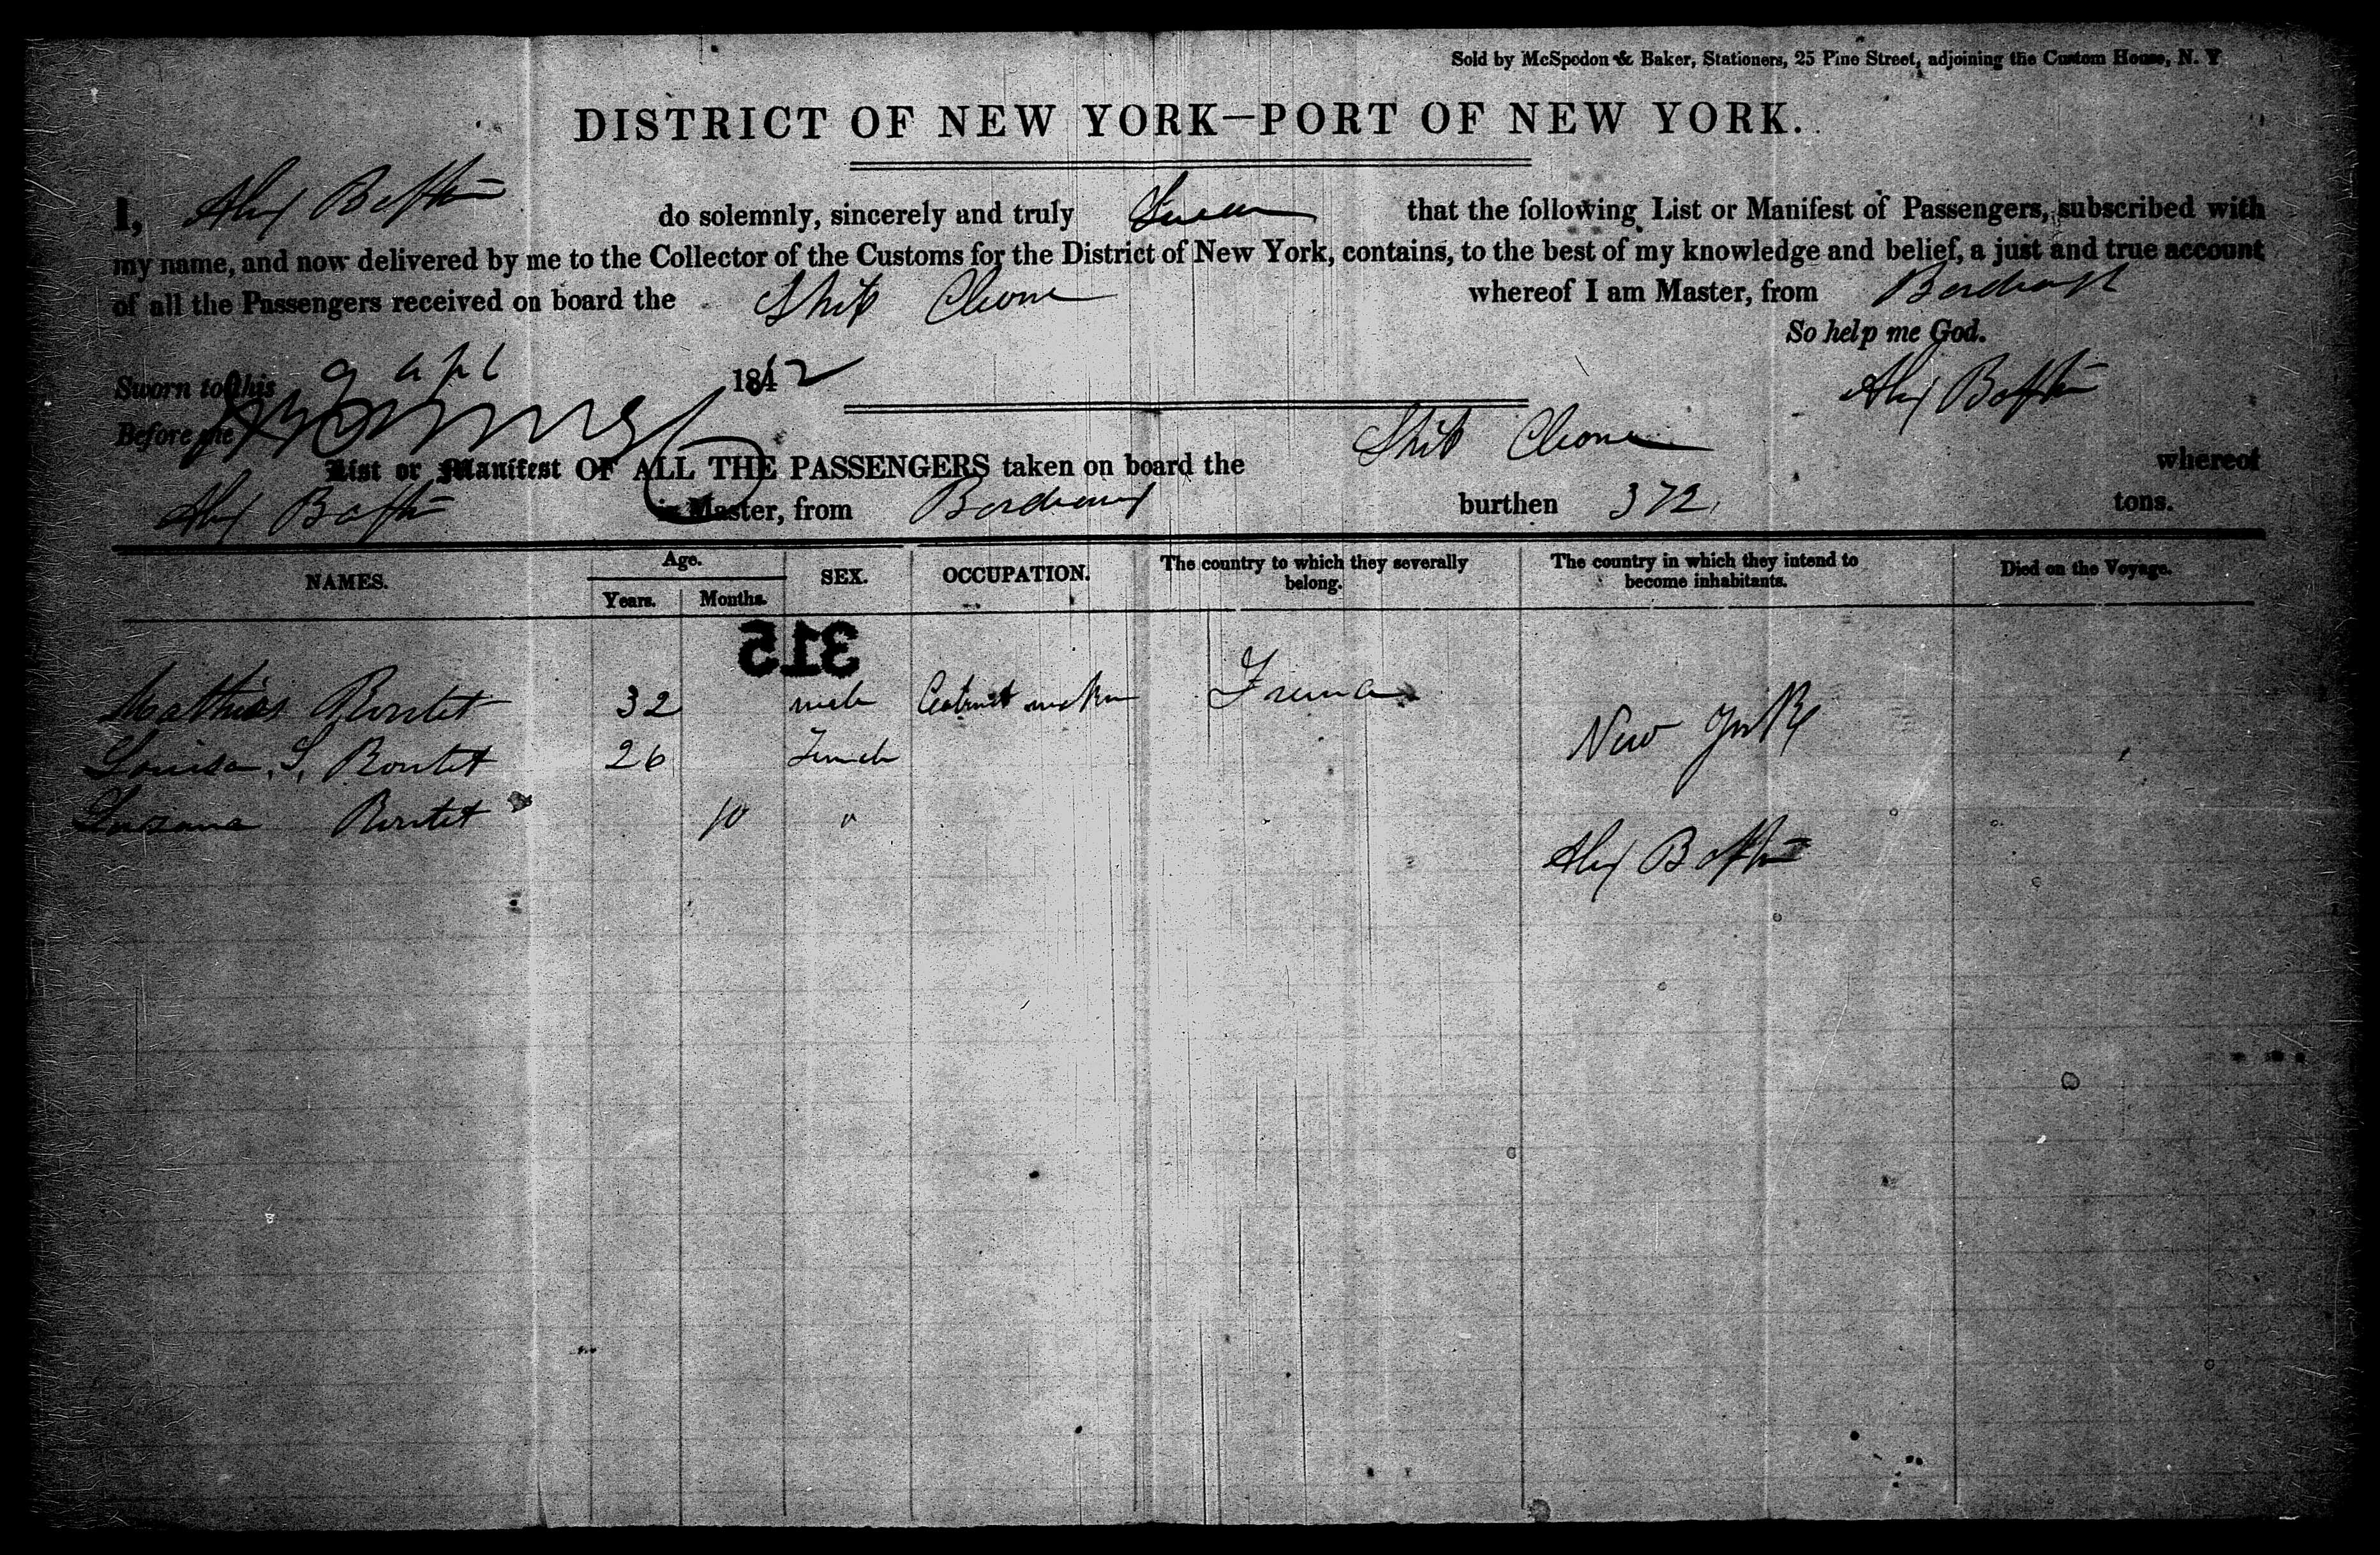 Sold by McSpedon & Baker, Stationers, 25 Pine Street, adjoining the Custom House, N. Y
DISTRICT OF NEW YORK—PORT OF NEW YORK.
I, Alex do solemnly, sincerely and truly Swear that the following List or Manifest of Passengers, subscribed with
my name, and now delivered by me to the Collector of the Customs for the District of New York, contains, to the best of my knowledge and belief, a just and true account
of all the Passengers received on board the Ship Cleone whereof I am Master, from Bordeaux
So help me God.
Sworn to this 9 apl 1842
Alex
Before me
List or Manifest OF ALL THE PASSENGERS taken on board the Ship Cleone whereof
Alex is Master, from Bordeaux burthen 372 tons.
NAMES. Age. Years. Months. SEX. OCCUPATION. The country to which they severally belong. The country in which they intend to become inhabitants. Died on the Voyage.
315
Mathias Boutet 32 male Cabinet maker France
Louisa, S, Boutet 26 Female New York
Susana Boutet 10 "
Alex